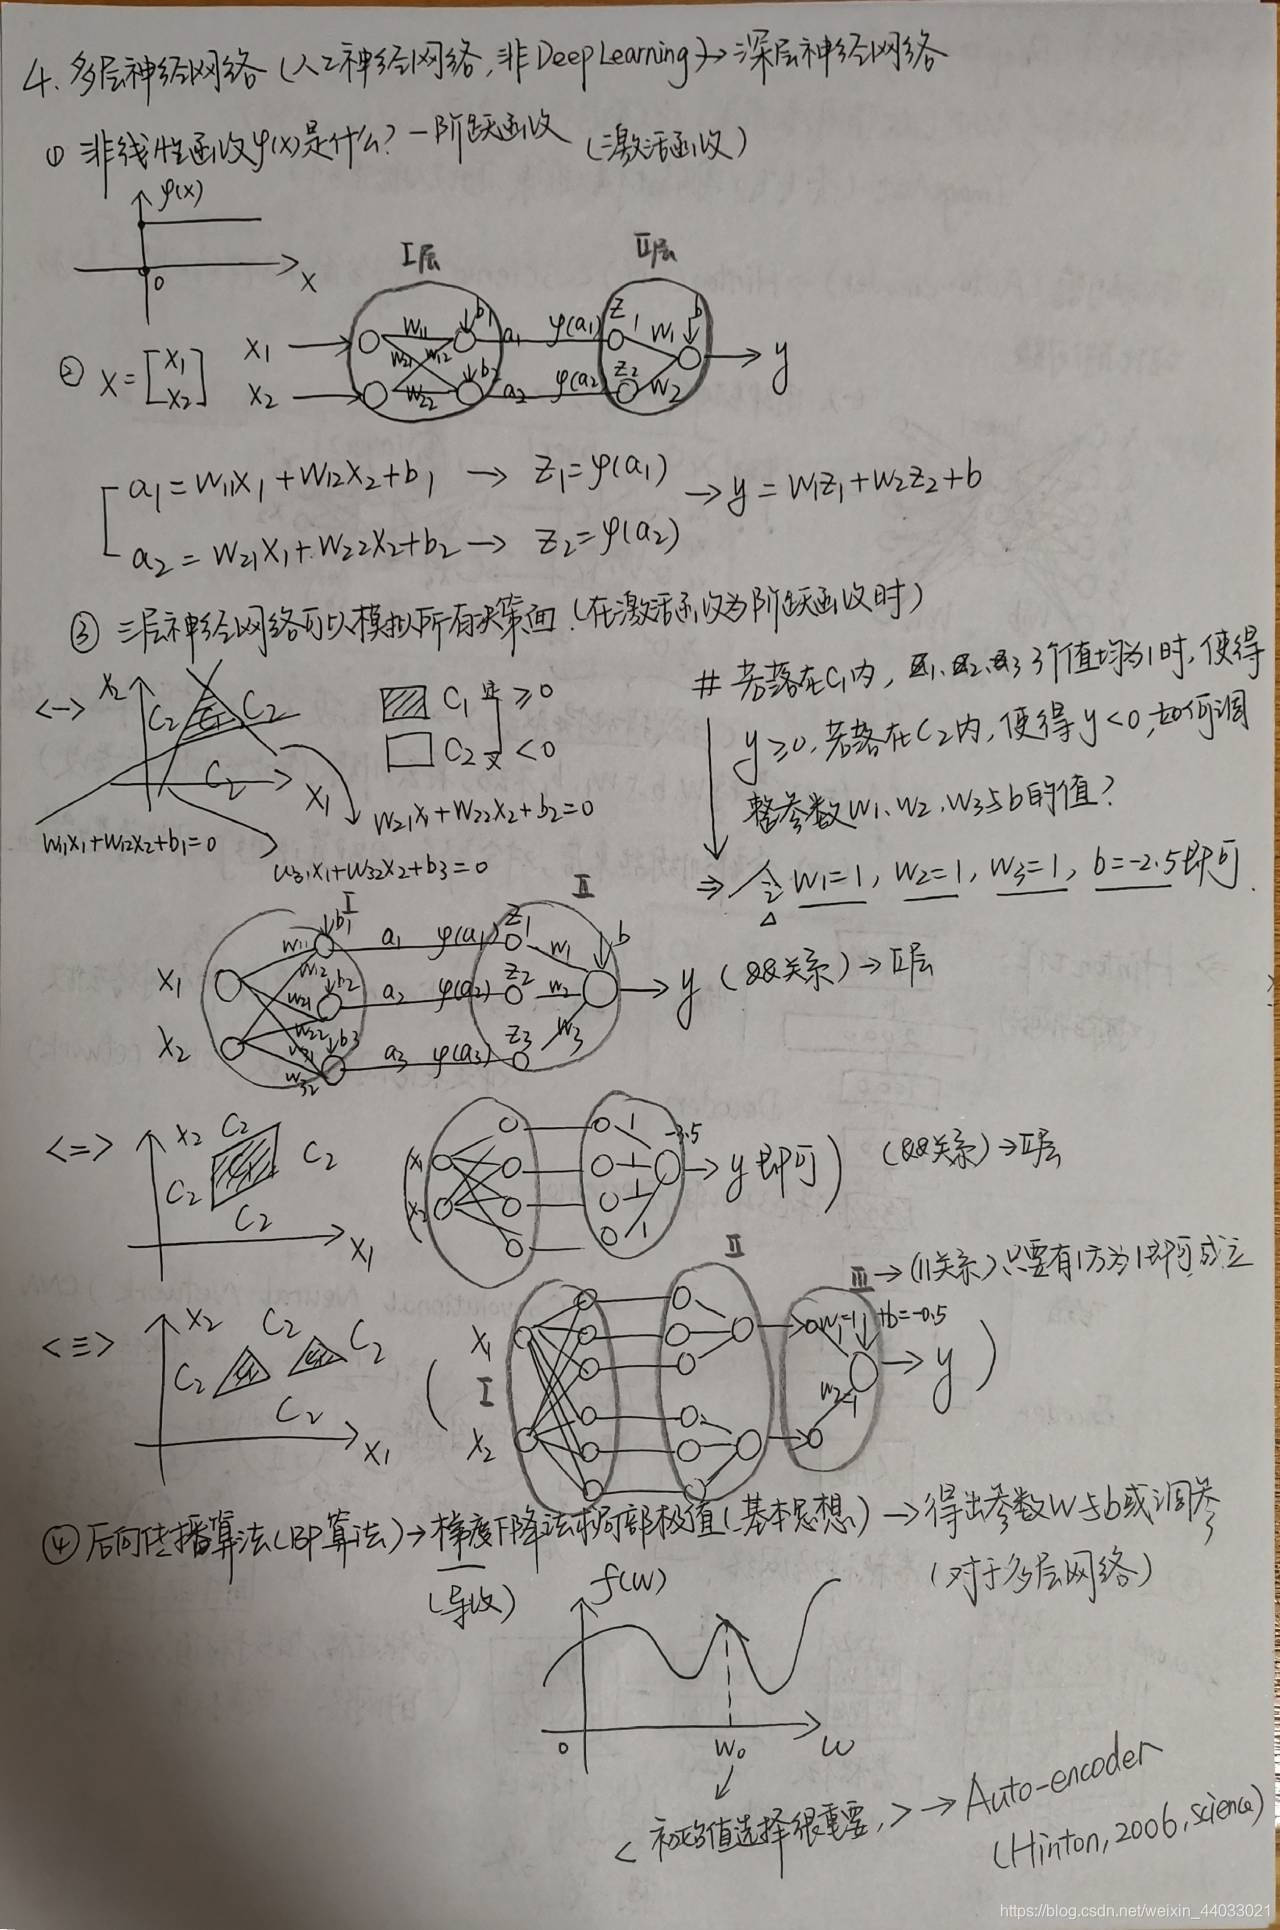 4. 多层神经网络 (人工神经网络, 非Deep Learning) → 深层神经网络
① 非线性函数φ(x)是什么? — 阶跃函数 (激活函数)
φ(x)
0
x
Ⅰ层
Ⅱ层
② X = [x1 x2]
x1
x2
w11
w21
w12
w22
b1
b2
a1
a2
φ(a1)
φ(a2)
z1
z2
w1
w2
b
y
a1 = w11x1 + w12x2 + b1 → z1 = φ(a1)
a2 = w21x1 + w22x2 + b2 → z2 = φ(a2)
→ y = w1z1 + w2z2 + b
③ 三层神经网络可以模拟所有决策面. (在激活函数为阶跃函数时)
<一>
x2
C2
C1
C2
C2
x1
C1 ≥0
C2 <0
w11x1+w12x2+b1=0
w21x1+w22x2+b2=0
w31x1+w32x2+b3=0
# 若落在C1内, z1、z2、z3 3个值均为1时, 使得
y≥0, 若落在C2内, 使得y<0, 如何调
整参数w1、w2、w3与b的值?
⇒ 令 w1=1, w2=1, w3=1, b=-2.5即可.
Ⅰ
Ⅱ
x1
x2
w11
w12
w21
w22
w31
w32
b1
b2
b3
a1
a2
a3
φ(a1)
φ(a2)
φ(a3)
z1
z2
z3
w1
w2
w3
b
y (&&关系) → Ⅱ层
<二>
x2
C2
C1
C2
C2
C2
x1
( x1
x2
1
1
1
1
-3.5
→ y 即可) (&&关系) → Ⅱ层
<三>
x2
C2
C2
C2
C1
C1
C2
x1
(
x1
Ⅰ
x2
Ⅱ
Ⅲ → (||关系) 只要有1方为1即可成立
w1=1
b=-0.5
w2=1
y )
④ 后向传播算法(BP算法) → 梯度下降法求局部极值(基本思想) → 得出参数w与b或调参
(导数)
(对于多层网络)
f(w)
0
w0
w
< 初始值选择很重要, > → Auto-encoder
(Hinton, 2006, science)
https://blog.csdn.net/weixin_44033021